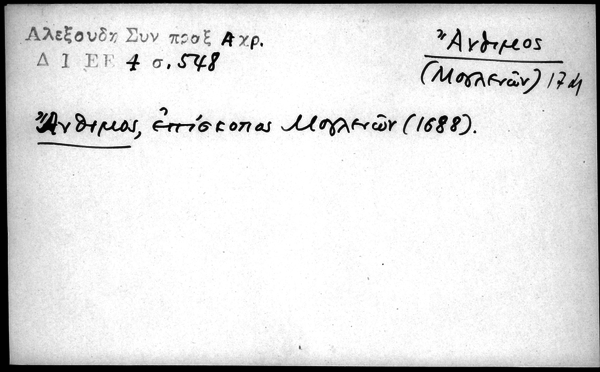 Αλεξουδη Συν προξ Αχρ.
Δ Ι ΕΕ 4 σ. 548
Ἄνθιμος
(Μογλενῶν) 17
Ἄνθιμος, ἐπίσκοπος Μογλενῶν (1688).